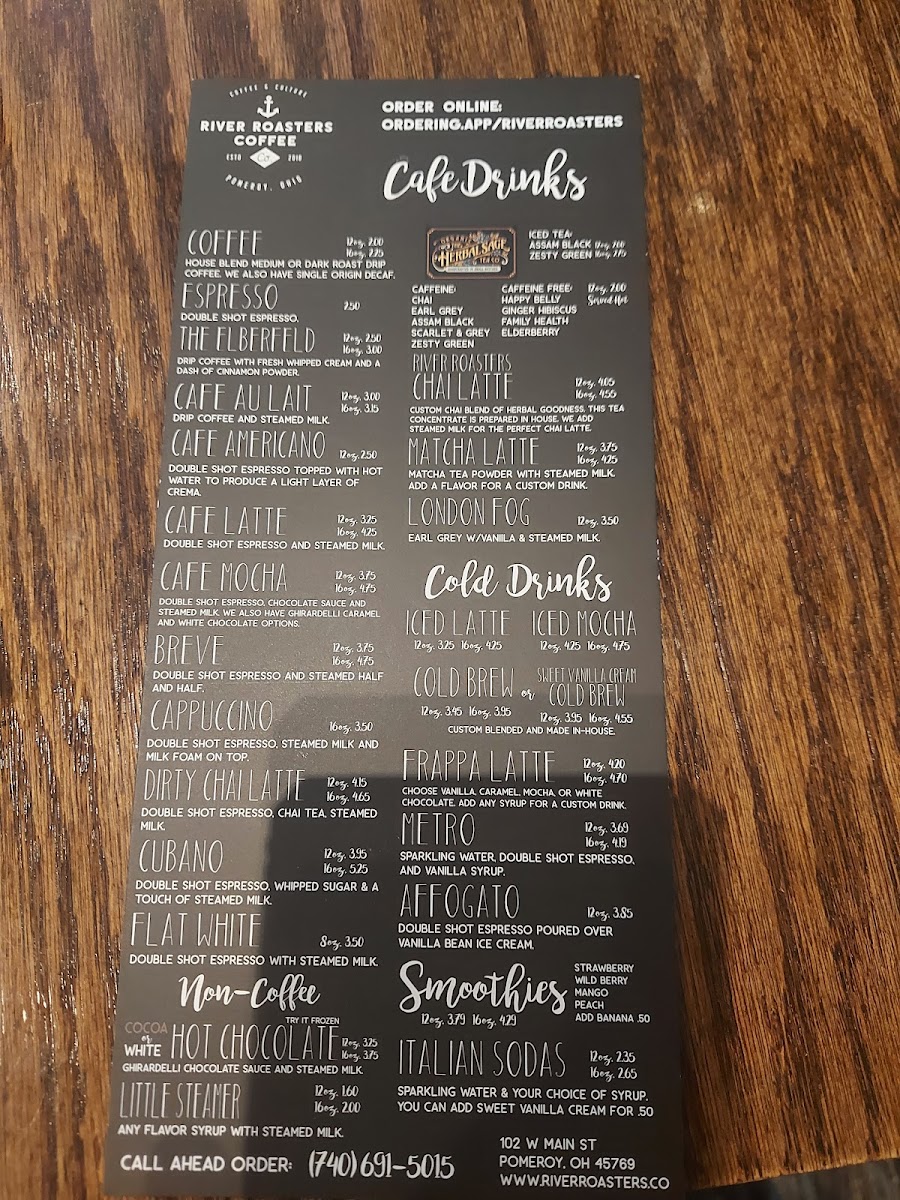 COFFEE & CULTURE
RIVER ROASTERS
COFFEE
ESTD Co. 2018
POMEROY, OHIO
ORDER ONLINE:
ORDERING.APP/RIVERROASTERS
Cafe Drinks
COFFEE 12oz. 2.00
16oz. 2.25
HOUSE BLEND MEDIUM OR DARK ROAST DRIP
COFFEE. WE ALSO HAVE SINGLE ORIGIN DECAF.
ESPRESSO 2.50
DOUBLE SHOT ESPRESSO.
THE ELBERFELD 12oz. 2.50
16oz. 3.00
DRIP COFFEE WITH FRESH WHIPPED CREAM AND A
DASH OF CINNAMON POWDER.
CAFE AU LAIT 12oz. 3.00
16oz. 3.15
DRIP COFFEE AND STEAMED MILK.
CAFE AMERICANO 12oz. 2.50
DOUBLE SHOT ESPRESSO TOPPED WITH HOT
WATER TO PRODUCE A LIGHT LAYER OF
CREMA.
CAFE LATTE 12oz. 3.25
16oz. 4.25
DOUBLE SHOT ESPRESSO AND STEAMED MILK.
CAFE MOCHA 12oz. 3.75
16oz. 4.75
DOUBLE SHOT ESPRESSO, CHOCOLATE SAUCE AND
STEAMED MILK. WE ALSO HAVE GHIRARDELLI CARAMEL
AND WHITE CHOCOLATE OPTIONS.
BREVE 12oz. 3.75
16oz. 4.75
DOUBLE SHOT ESPRESSO AND STEAMED HALF
AND HALF.
CAPPUCCINO 16oz. 3.50
DOUBLE SHOT ESPRESSO, STEAMED MILK AND
MILK FOAM ON TOP.
DIRTY CHAI LATTE 12oz. 4.15
16oz. 4.65
DOUBLE SHOT ESPRESSO, CHAI TEA, STEAMED
MILK.
CUBANO 12oz. 3.95
16oz. 5.25
DOUBLE SHOT ESPRESSO, WHIPPED SUGAR & A
TOUCH OF STEAMED MILK.
FLAT WHITE 8oz. 3.50
DOUBLE SHOT ESPRESSO WITH STEAMED MILK.
Non-Coffee
TRY IT FROZEN
COCOA
or
WHITE HOT CHOCOLATE 12oz. 3.25
16oz. 3.75
GHIRARDELLI CHOCOLATE SAUCE AND STEAMED MILK.
LITTLE STEAMER 12oz. 1.60
16oz. 2.00
ANY FLAVOR SYRUP WITH STEAMED MILK.
CALL AHEAD ORDER: (740) 691-5015
HERBAL SAGE
TEA CO
ICED TEA:
ASSAM BLACK 12oz. 2.00
ZESTY GREEN 16oz. 2.75
CAFFEINE:
CHAI
EARL GREY
ASSAM BLACK
SCARLET & GREY
ZESTY GREEN
CAFFEINE FREE: 12oz. 2.00
HAPPY BELLY Served Hot
GINGER HIBISCUS
FAMILY HEALTH
ELDERBERRY
RIVER ROASTERS
CHAI LATTE 12oz. 4.05
16oz. 4.55
CUSTOM CHAI BLEND OF HERBAL GOODNESS. THIS TEA
CONCENTRATE IS PREPARED IN HOUSE. WE ADD
STEAMED MILK FOR THE PERFECT CHAI LATTE.
MATCHA LATTE 12oz. 3.75
16oz. 4.25
MATCHA TEA POWDER WITH STEAMED MILK.
ADD A FLAVOR FOR A CUSTOM DRINK.
LONDON FOG 12oz. 3.50
EARL GREY W/VANIILA & STEAMED MILK.
Cold Drinks
ICED LATTE
12oz. 3.25 16oz. 4.25
ICED MOCHA
12oz. 4.25 16oz. 4.75
COLD BREW or
12oz. 3.45 16oz. 3.95
SWEET VANILLA CREAM
COLD BREW
12oz. 3.95 16oz. 4.55
CUSTOM BLENDED AND MADE IN-HOUSE.
FRAPPA LATTE 12oz. 4.20
16oz. 4.70
CHOOSE VANILLA, CARAMEL, MOCHA, OR WHITE
CHOCOLATE. ADD ANY SYRUP FOR A CUSTOM DRINK.
METRO 12oz. 3.69
16oz. 4.19
SPARKLING WATER, DOUBLE SHOT ESPRESSO,
AND VANILLA SYRUP.
AFFOGATO 12oz. 3.85
DOUBLE SHOT ESPRESSO POURED OVER
VANILLA BEAN ICE CREAM.
Smoothies
12oz. 3.79 16oz. 4.29
STRAWBERRY
WILD BERRY
MANGO
PEACH
ADD BANANA .50
ITALIAN SODAS 12oz. 2.35
16oz. 2.65
SPARKLING WATER & YOUR CHOICE OF SYRUP.
YOU CAN ADD SWEET VANILLA CREAM FOR .50
102 W MAIN ST
POMEROY, OH 45769
WWW.RIVERROASTERS.CO